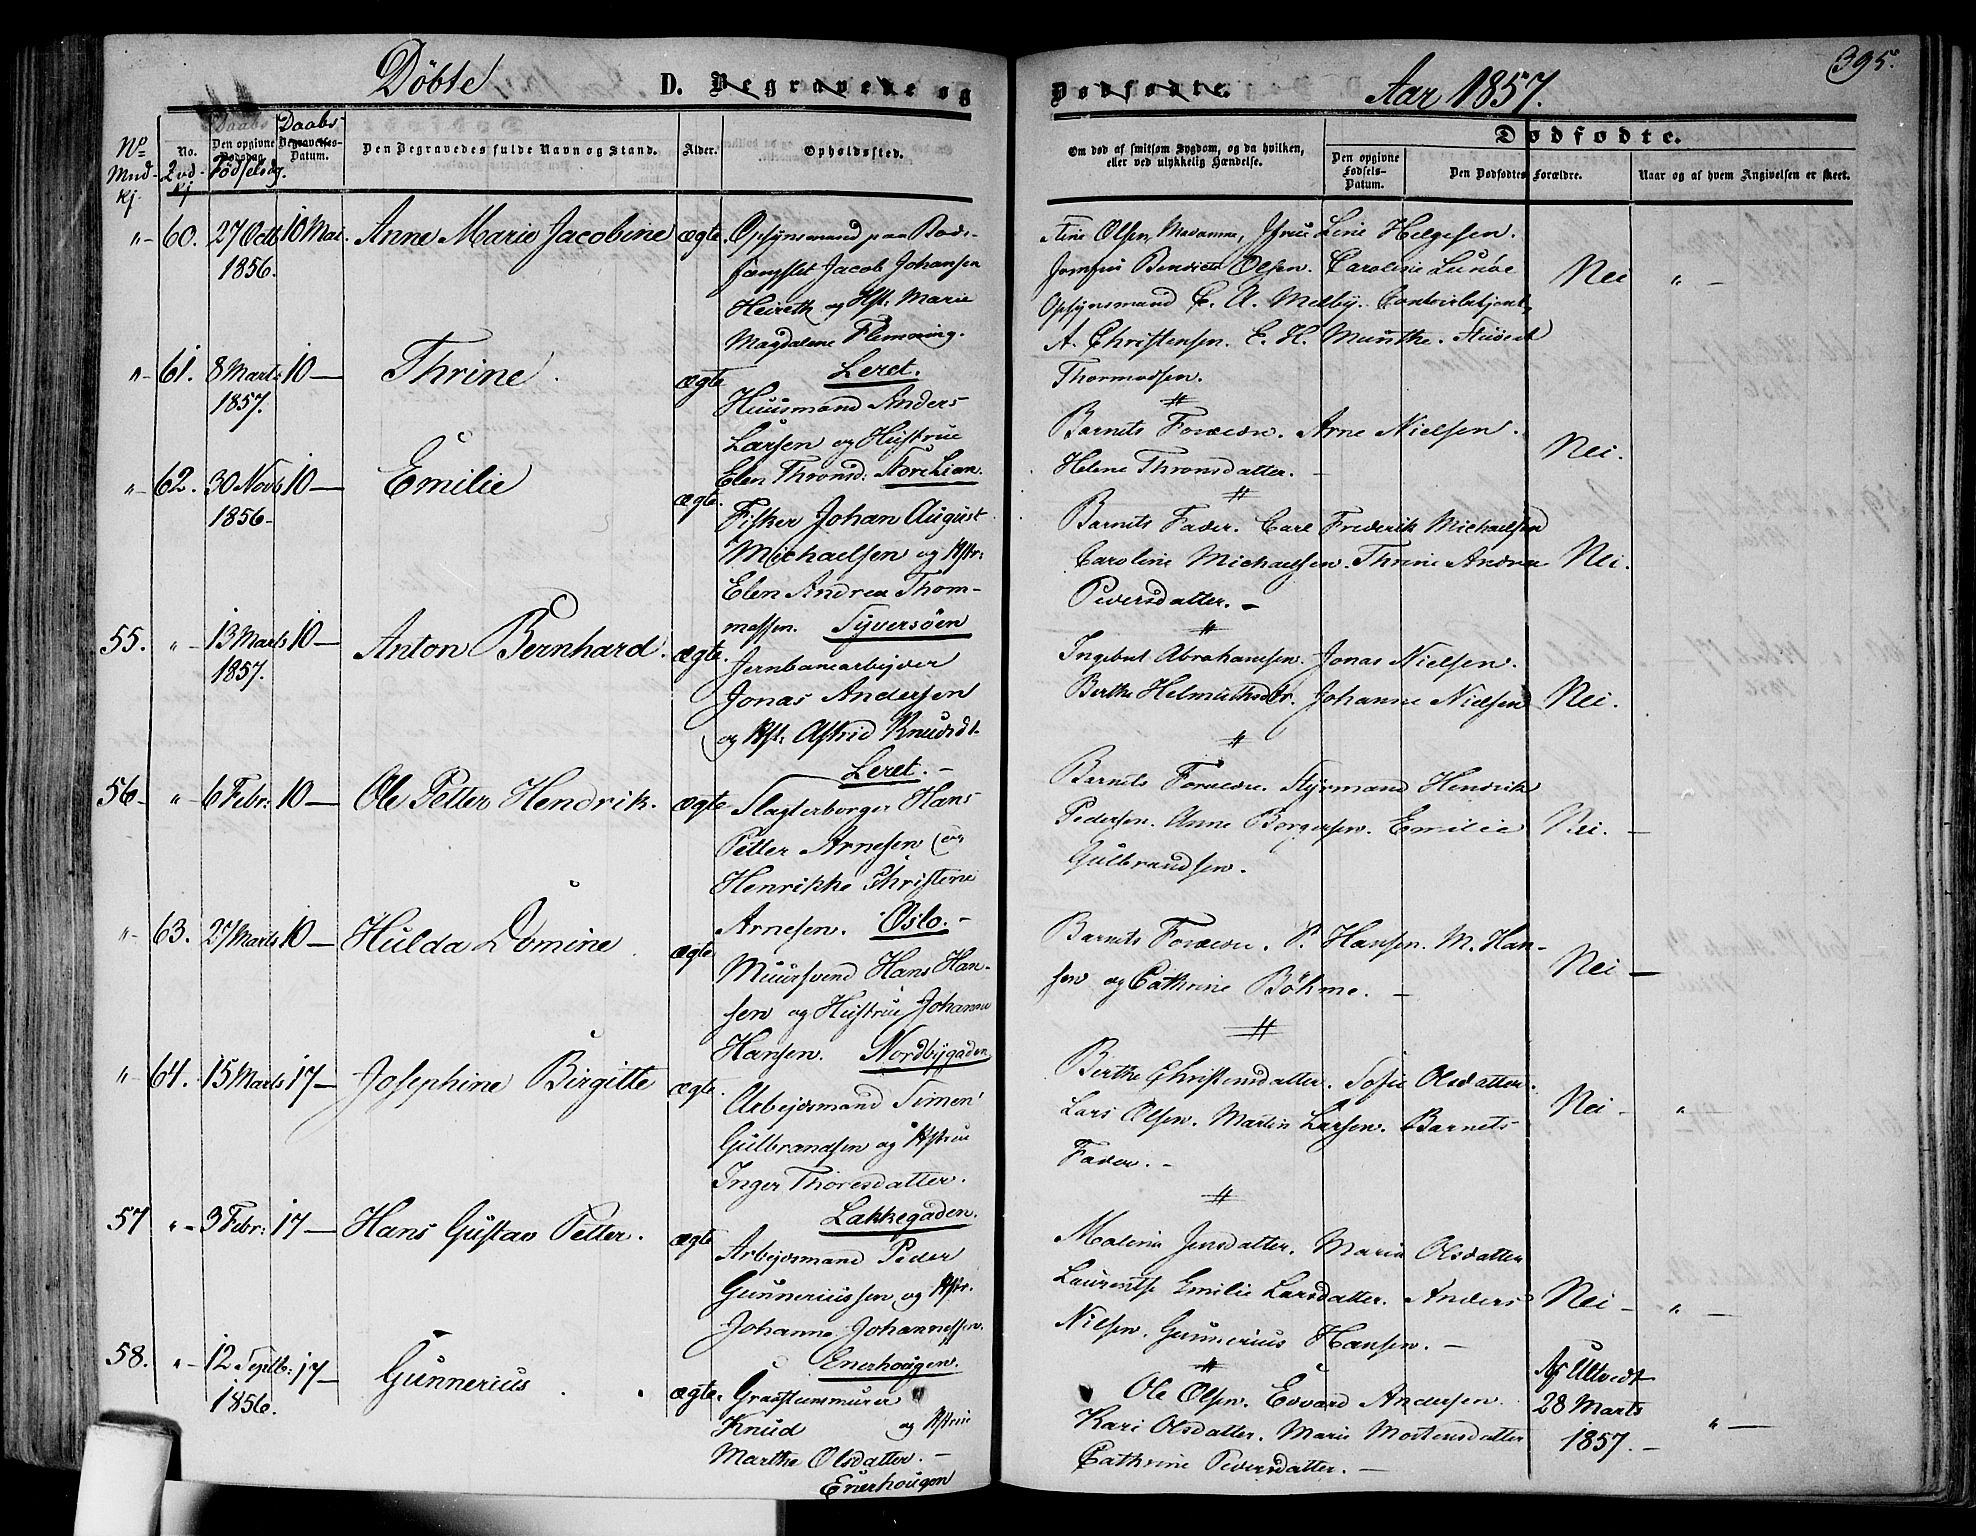 Döbte D. Begravede og
Dødfødte. Aar 1857. 395.
No. Mnd-kj. No. 2vd-kj Daabs Den opgivne Dødsdag. Fødselsdg. Daabs- Begravelses-Datum. Den Begravedes fulde Navn og Stand. Alder. Opholdssted.
Om død af smitsom Sygdom, og da hvilken, eller ved ulykkelig Hændelse. Dødfødte.
Den opgivne Fødsels-Datum. Den Dødfødtes Forældre. Naar og af hvem Angivelsen er skeet.
"- 60. 27 Octb 10 Mai. Anne Marie Jacobine ægte. Opsynsmand paa Bods-
1856. fængslet Jacob Johansen
Heireth og Hst. Marie
Magdalene Flemming.
Leret.
Stine Olsen, Madamme, Fru Line Helgesen.
Jomfru Bendicte Olsen. Caroline Lunöe
Opsynsmand C. A. Melby. Contoirbetjent
A. Christensen. E. H. Munthe. Student
Thormodsen.
Nei " -
"- 61. 8 Marts 10 — Thrine. ægte
1857. Huusmand Anders
Larsen og Hustrue
Elen Thronsd: Store Lian.
Barnets Forældre. Arne Nielsen.
Helene Thronsdatter. -
Nei.
"- 62. 30 Novb 10 — Emilie ægte.
1856- Fisker Johan August
Michaelsen og Hstr:
Elen Andrea Thom-
massen. Syversöen
Barnets Fader. Carl Frederik Michaelsen
Caroline Michaelsen. Thrine Andrea
Pedersdatter. -
Nei.
55. "- 13 Marts 10 — Anton Bernhard. ægte.
1857. Jernbanearbejder
Jonas Andersen
og Hst: Astrid Knudsdt.
Leret. -
Ingebret Abrahamsen. Jonas Nielsen.
Berthe Helmuthsdtr. Johanne Nielsen
Nei.
56- "- 6 Febr: 10 — Ole Petter Hendrik. ægte
Slagterborger Hans
Petter Arnesen og
Henrikke Christine
Arnesen. Oslo. -
Barnets Forældre. Styrmand Hendrik
Pedersen. Anne Borgersen. Emilie
Gulbrandsen.
Nei. —
"- 63. 27 Marts 10 — Hulda Domine. ægte
Muursvend Hans Han-
sen og Hustrue Johanne
Hansen. Nordbygaden
Barnets Forældre. P. Hansen. M. Han-
sen og Cathrine Böhme. -
Nei —
"- 64. 15 Marts 17 — Josephine Birgitte ægte.
Arbejdsmand Simen
Gulbrandsen og Hstrue
Inger Thoresdatter.
Lakkegaden.
Berthe Christensdatter. Sofie Olsdatter.
Lars Olsen. Martin Larsen. Barnets
Fader. -
Nei - "
57 "- 3 Febr: 17 — Hans Gustav Petter. ægte
Arbejdsmand Peder
Gunneriussen og Hstr.
Johanne Johannessen.
Enerhougen.
Malena Jensdatter. Maria Olsdatter
Laurentse Emilie Larsdatter. Anders
Nilsen. Gunnerius Hansen. -
Nei - " —
58. "- 12 Septb: 17 — Gunnerius. ægte.
1856. Graastensmurer
Knud og Hstrue
Marthe Olsdatter. -
Enerhougen
Ole Olsen. Edvard Andersen.
Kari Olsdatter. Marie Mortensdatter
Cathrine Pedersdatter. -
Aj Ultvedt
28 Marts
1857. - " —